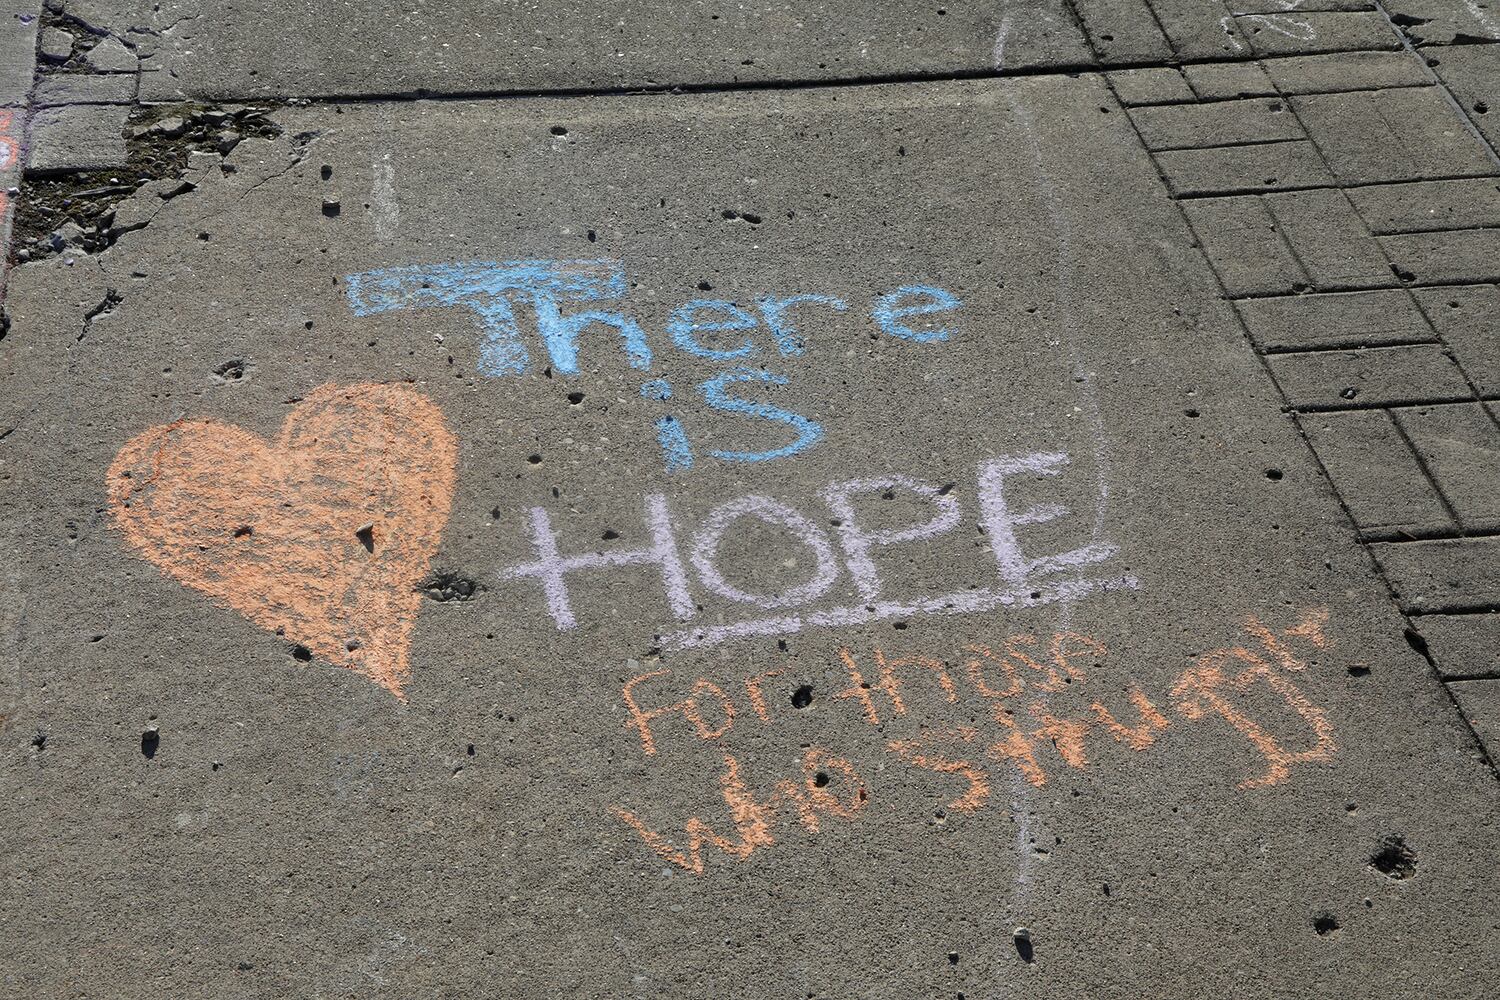 There
is
HOPE
For those
who struggle